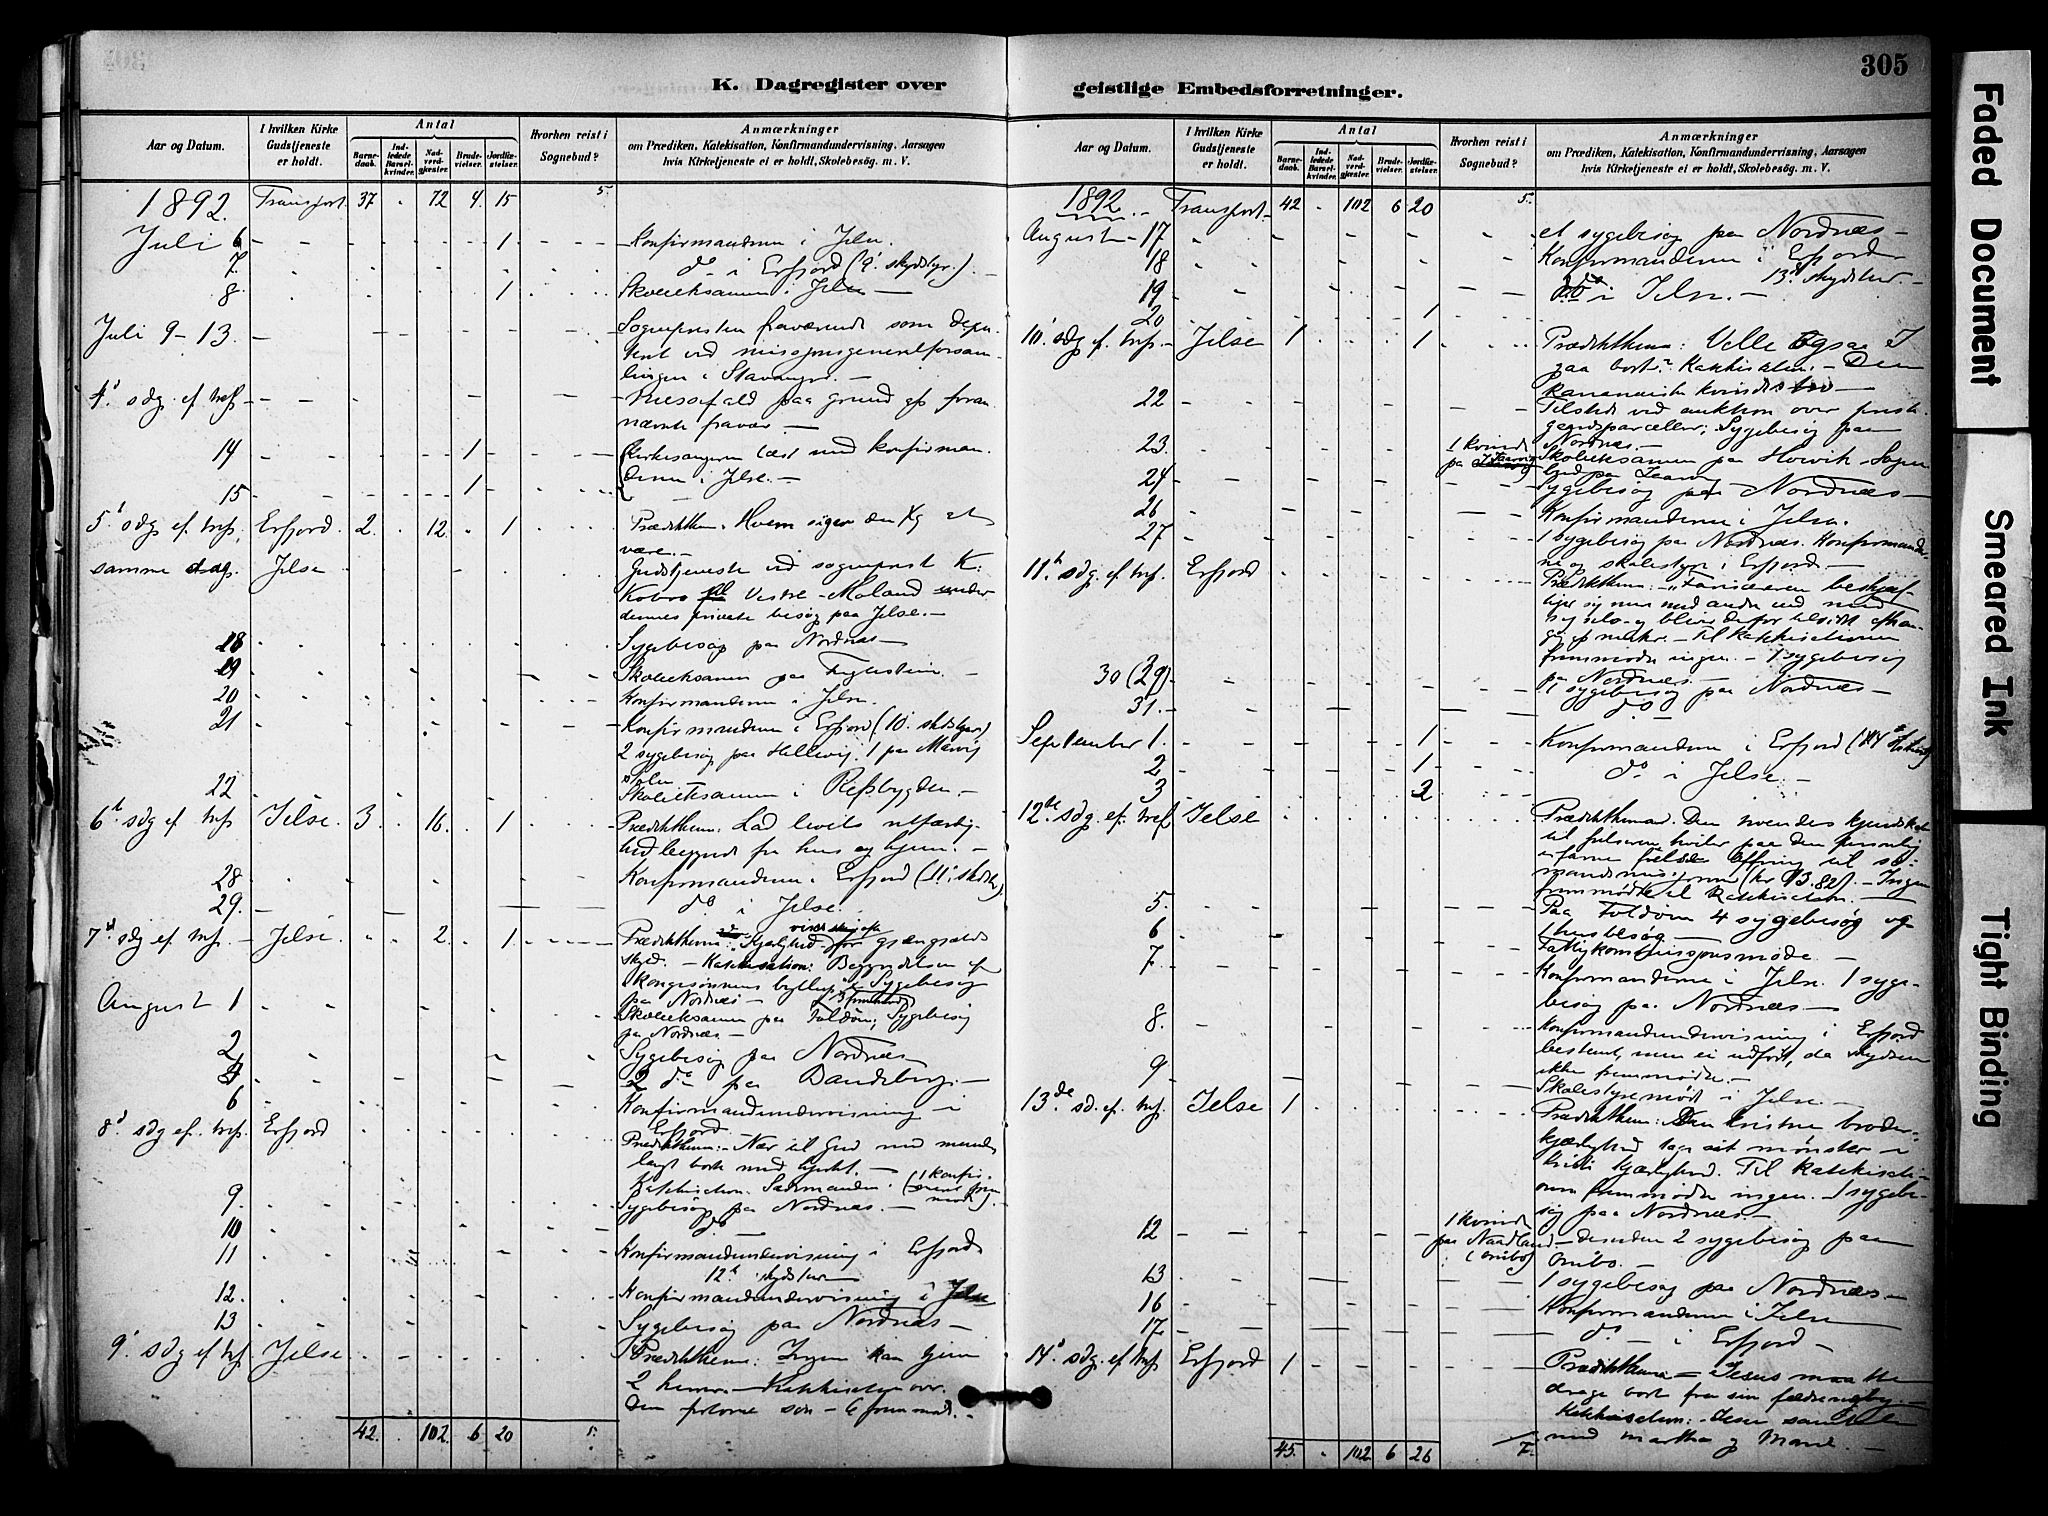 305
K. Dagregister over
geistlige Embedsforretninger.
Aar og Datum.
I hvilken Kirke Gudstjeneste er holdt.
Antal
Barnedaab.
Indledede Barselkvinder.
Nadverdgjæster.
Brudevielser.
Jordfæstelser.
Hvorhen reist i Sognebud?
Anmærkninger
om Prædiken, Katekisation, Konfirmandundervisning, Aarsagen
hvis Kirketjeneste ei er holdt, Skolebesøg. m. V.
1892. Transport 37 72 4 15 5.
Juli 6 1 Konfirmanderne i Jelse.
7. do i Erfjord (9. skydstur).
8 1 Skoleeksamen i Jelse
Juli 9-13. Sognepresten fraværende som depu-
tent ved missionsgeneralforsam-
lingen i Stavanger. —
4. sdg ef tref Messefald paa grund af foran-
nævnte fravær. —
14 1 Kirkesangeren læst med konfirman-
15 1 derne i Jelse. —
5. sdg ef. tref. Erfjord. 2. 12. 1 Prædikthem. Hvem siger du Jeg at
være. —
samme dag. Jelse Gudstjeneste ved sogneprest K.
Kobro Vestre-Moland under
dennes private besøg paa Jelse. —
18 Sygebesøg paa Nordnæs —
19 Skoleeksamen paa
20 Konfirmanderne i Jelse.
21 Konfirmanderne i Erfjord (10. skydstur)
2 sygebesøg paa Hellevig. 1 paa
22 Skoleeksamen i —
6t sdg ef tref Jelse. 3. 16. 1 Prædikthem: Lad livets retfærdig-
hed begynde fra hus og hjem. —
28 Konfirmanderne i Erfjord (11. skydstur)
29. do i Jelse.
7d sdg ef. tref. Jelse. 2. 1 Prædikthem: Kjærlighed
— Katekisation: Begyndelsen af
kongesønnens bryllup. Sygebesøg
paa Nordnæs —
August 1 Skoleeksamen paa Foldøen; Sygebesøg
paa Nordnæs —
2 Sygebesøg paa Nordnæs
4 2 do paa Bandsberg. —
6 Konfirmandundervisning i
Erfjord
8d sdg ef. tref. Erfjord Prædikthem: — Nær til Gud med munden
langt borte med hjertet. —
Katekisation. Sædemanden. (1 konfir-
9. Sygebesøg paa Nordnæs. —
10 do —
11 Konfirmandundervisning i Erfjord
12t skydstur
12. Konfirmandundervisning i Jelse
13 Sygebesøg paa Nordnæs —
9. sdg ef tref Jelse Prædikthem: Ingen kan tjene
2 herrer. — Katekisation over
Den fortabte søn — 6 fremmødt. —
42. 102. 6 20 5.
Aar og Datum.
I hvilken Kirke Gudstjeneste er holdt.
Antal
Barnedaab.
Indledede Barselkvinder.
Nadverdgjæster.
Brudevielser.
Jordfæstelser.
Hvorhen reist i Sognebud?
Anmærkninger
om Prædiken, Katekisation, Konfirmandundervisning, Aarsagen
hvis Kirketjeneste ei er holdt, Skolebesøg. m. V.
1892. Transport 42 102 6 20 5.
August 17 et sygebesøg paa Nordnæs —
18 Konfirmanderne i Erfjord
13d skydstur. —
19 do i Jelse. —
20 1
10. sdg ef. tref. Jelse 1 1 Prædikthem: Ville ogsaa I
gaa bort? Katekisation. — Den
kananæiske kvindes bøn —
22 Tilstede ved auktion over preste-
gaardsparceller; Sygebesøg paa
Nordnæs. —
23. 1 kvinde paa Skoleeksamen paa Hovik.
24 Sygebesøg paa Nordnæs —
26 Konfirmanderne i Jelse.
27 1 sygebesøg paa Nordnæs. Konfirmander-
ne og skolestyre i Erfjord. —
11t sdg. ef. tref. Erfjord Prædikthem: — Farisæeren beskjæf-
tiger sig mer med andre end med
sig selv og bliver derfor
— Til katekisationen
fremmødte ingen. — 1 sygebesøg
paa Nordnæs. —
30 (29) 1 sygebesøg paa Nordnæs —
31. do —
September 1. 1 Konfirmanderne i Erfjord (14d skydstur)
2 1 do i Jelse. —
3 2
12te sdg. ef. tref Jelse Prædikthema. Den troendes kjendskab
til frelseren hviler paa den personlig
erfarne frelse Offring til sø-
mandsmissjonen (kr 13.82). — Ingen
fremmødte til katekisation. —
5. Paa Foldøen 4 sygebesøg og
1 husbesøg —
6 Fattigkommissjonsmøde. —
7. Konfirmanderne i Jelse. 1 syge-
besøg paa Nordnæs —
8. Konfirmandundervisning i Erfjord
bestemt, men ei udført, da skydsen
ikke fremmødte. —
9 Skolestyremøde i Jelse. —
13de sd. ef. tref. Jelse 1 Prædikthem: Den kristne broder-
kjærlighed tage sit mønster i
Kristi kjærlighed. Til katekisati-
onen fremmødte ingen. 1 sygebe-
søg paa Nordnæs. —
12 1 kvinde paa Naadland (Ombo) — desuden 2 sygebesøg paa
Ombo. —
13 1 sygebesøg paa Nordnæs —
16 Konfirmanderne i Jelse
17. do — i Erfjord
14d sdg. ef. tref. Erfjord 1 Prædikthema — Jesus maatte
drage bort fra sin fædreneby —
Katekisation: — Jesu samtale
med Martha og Marie. —
45. 102. 6 26 7.
Faded Document
Smeared Ink
Tight Binding